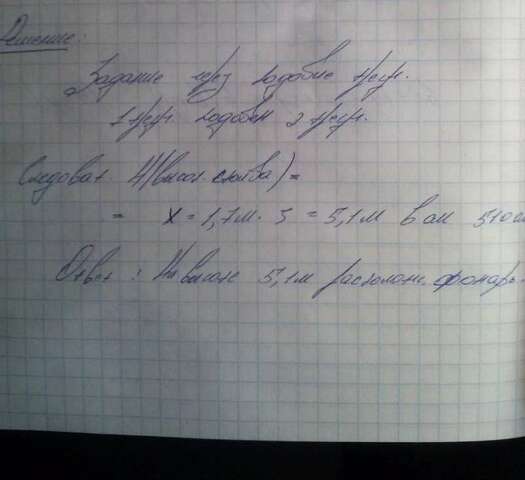 Решение:
Задание через подобие треуг.
1 треуг. подобен 2 треуг.
Следоват. H(высот. столба) =
= x = 1,7м · 3 = 5,1м в см 510см
Ответ: На высоте 5,1м располож. фонарь